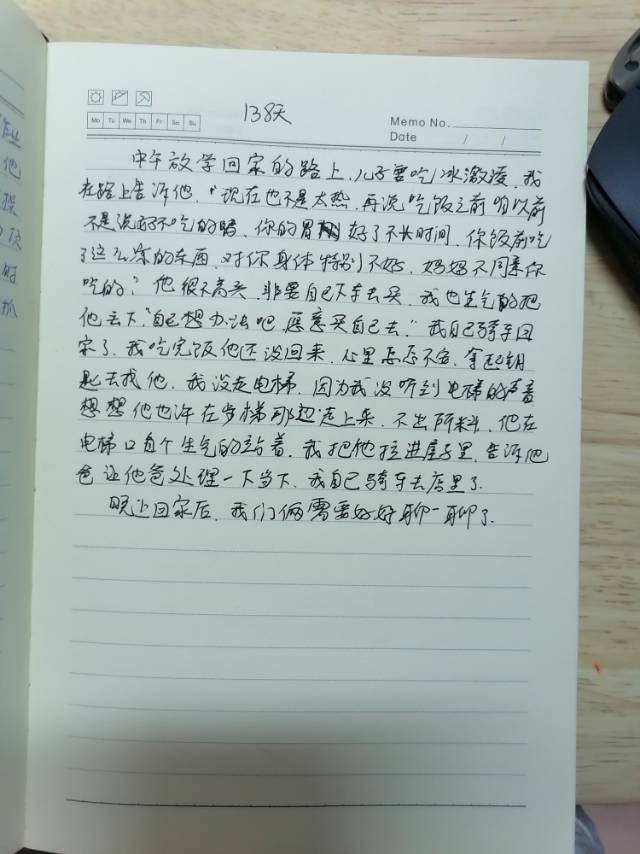 138天
Memo No.
Date / /
Mo Tu We Th Fr Sa Su
中午放学回家的路上,儿子要吃冰激凌,我
在路上告诉他,"现在也不是太热,再说吃饭之前咱以前
不是说好不吃的嘛,你的胃刚好了不长时间,你饭前吃
了这么凉的东西,对你身体特别不好,妈妈不同意你
吃的"他很不高兴,非要自己下车去买,我也生气的把
他丢下"自己想办法吧,愿意买自己去"我自己骑车回
家了,我吃完饭他还没回来,心里忐忑不安,拿起钥
匙去找他,我没走电梯,因为我没听到电梯的声音
想想他也许在步梯那边走上来,不出所料,他在
电梯口自个生气的站着,我把他拉进屋子里,告诉他
爸让他爸处理一下当下,我自己骑车去店里了.
晚上回家后,我们俩需要好好聊一聊了.
作业
他